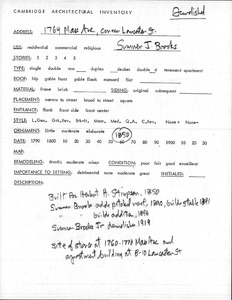 CAMBRIDGE ARCHITECTURAL INVENTORY
Demolished
ADDRESS: 1764 Mass Ave, corner Lancaster St.
USE: residential commercial religious Sumner J Brooks
STORIES: 1 2 3 4 5
TYPE: single double row duplex decker double-d tenement apartment
ROOF: hip gable front gable flank mansard flat
MATERIAL: frame brick SIDING: original subsequent
PLACEMENT: narrow to street broad to street square
ENTRANCE: flank front side front center
STYLE: L.Geo, Grk.Rev, Brkt, Mans, Med, Q.A, C.Rev, None+ None-
ORNAMENT: little moderate elaborate
1850
DATE: 1790 1800 10 20 30 40 50 60 70 80 90 1900 10 20 30
MAP:
REMODELING: drastic moderate minor CONDITION: poor fair good excellent
IMPORTANCE TO SETTING: detrimental none moderate great INITIALED:
DESCRIPTION:
Built for Herbert H. Stimpson, 1850
Sumner Brooks adds 1890, builds stable 1891
" builds addition, 1896
Sumner Brooks Jr demolishes 1919
Site of stores at 1760-1770 Mass Ave and
apartment building at 8-10 Lancaster St